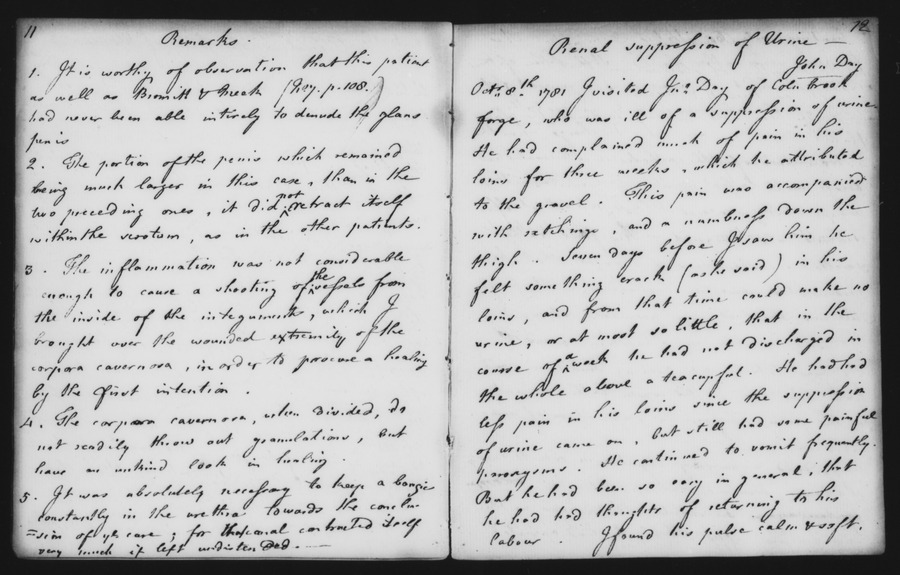 11
Remarks.
1. It is worthy of observation that this patient
as well as & Heath (Hey. p. 108.)
had never been able intirely to denude the glans
penis
2. The portion of the penis which remained
being much larger in this case, than in the
two preceding ones, it did not retract itself
within the scrotum, as in the other patients.
3. The inflammation was not considerable
enough to cause a shooting of the vessels from
the inside of the integuments, which I
brought over the wounded extremity of the
corpora cavernosa, in order to procure a healing
by the first intention.
4. The corpora cavernosa, when divided, do
not readily throw out granulations, but
have an unkind look in healing.
5. It was absolutely necessary to keep a bougie
constantly in the urethra towards the conclu-
=sion of ye cure; for the canal contracted itself
very much if left undistended.
12
Renal suppression of Urine —
John Day
Octr. 8th 1781 I visited Jno. Day of Coln brook
forge, who was ill of a suppression of urine.
He had complained much of pain in his
loins for three weeks, which he attributed
to the gravel. This pain was accompanied
with retchings, and a numbness down the
thigh. Seven days before I saw him he
felt something crack (as he said) in his
loins, and from that time could make no
urine, or at most so little, that in the
course of a week he had not discharged in
the whole above a teacupful. He had had
less pain in his loins since the suppression
of urine came on, but still had some painful
paroxysms. He continued to vomit frequently.
But he had been so easy in general, that
he had had thoughts of returning to his
labour. I found his pulse calm & soft.